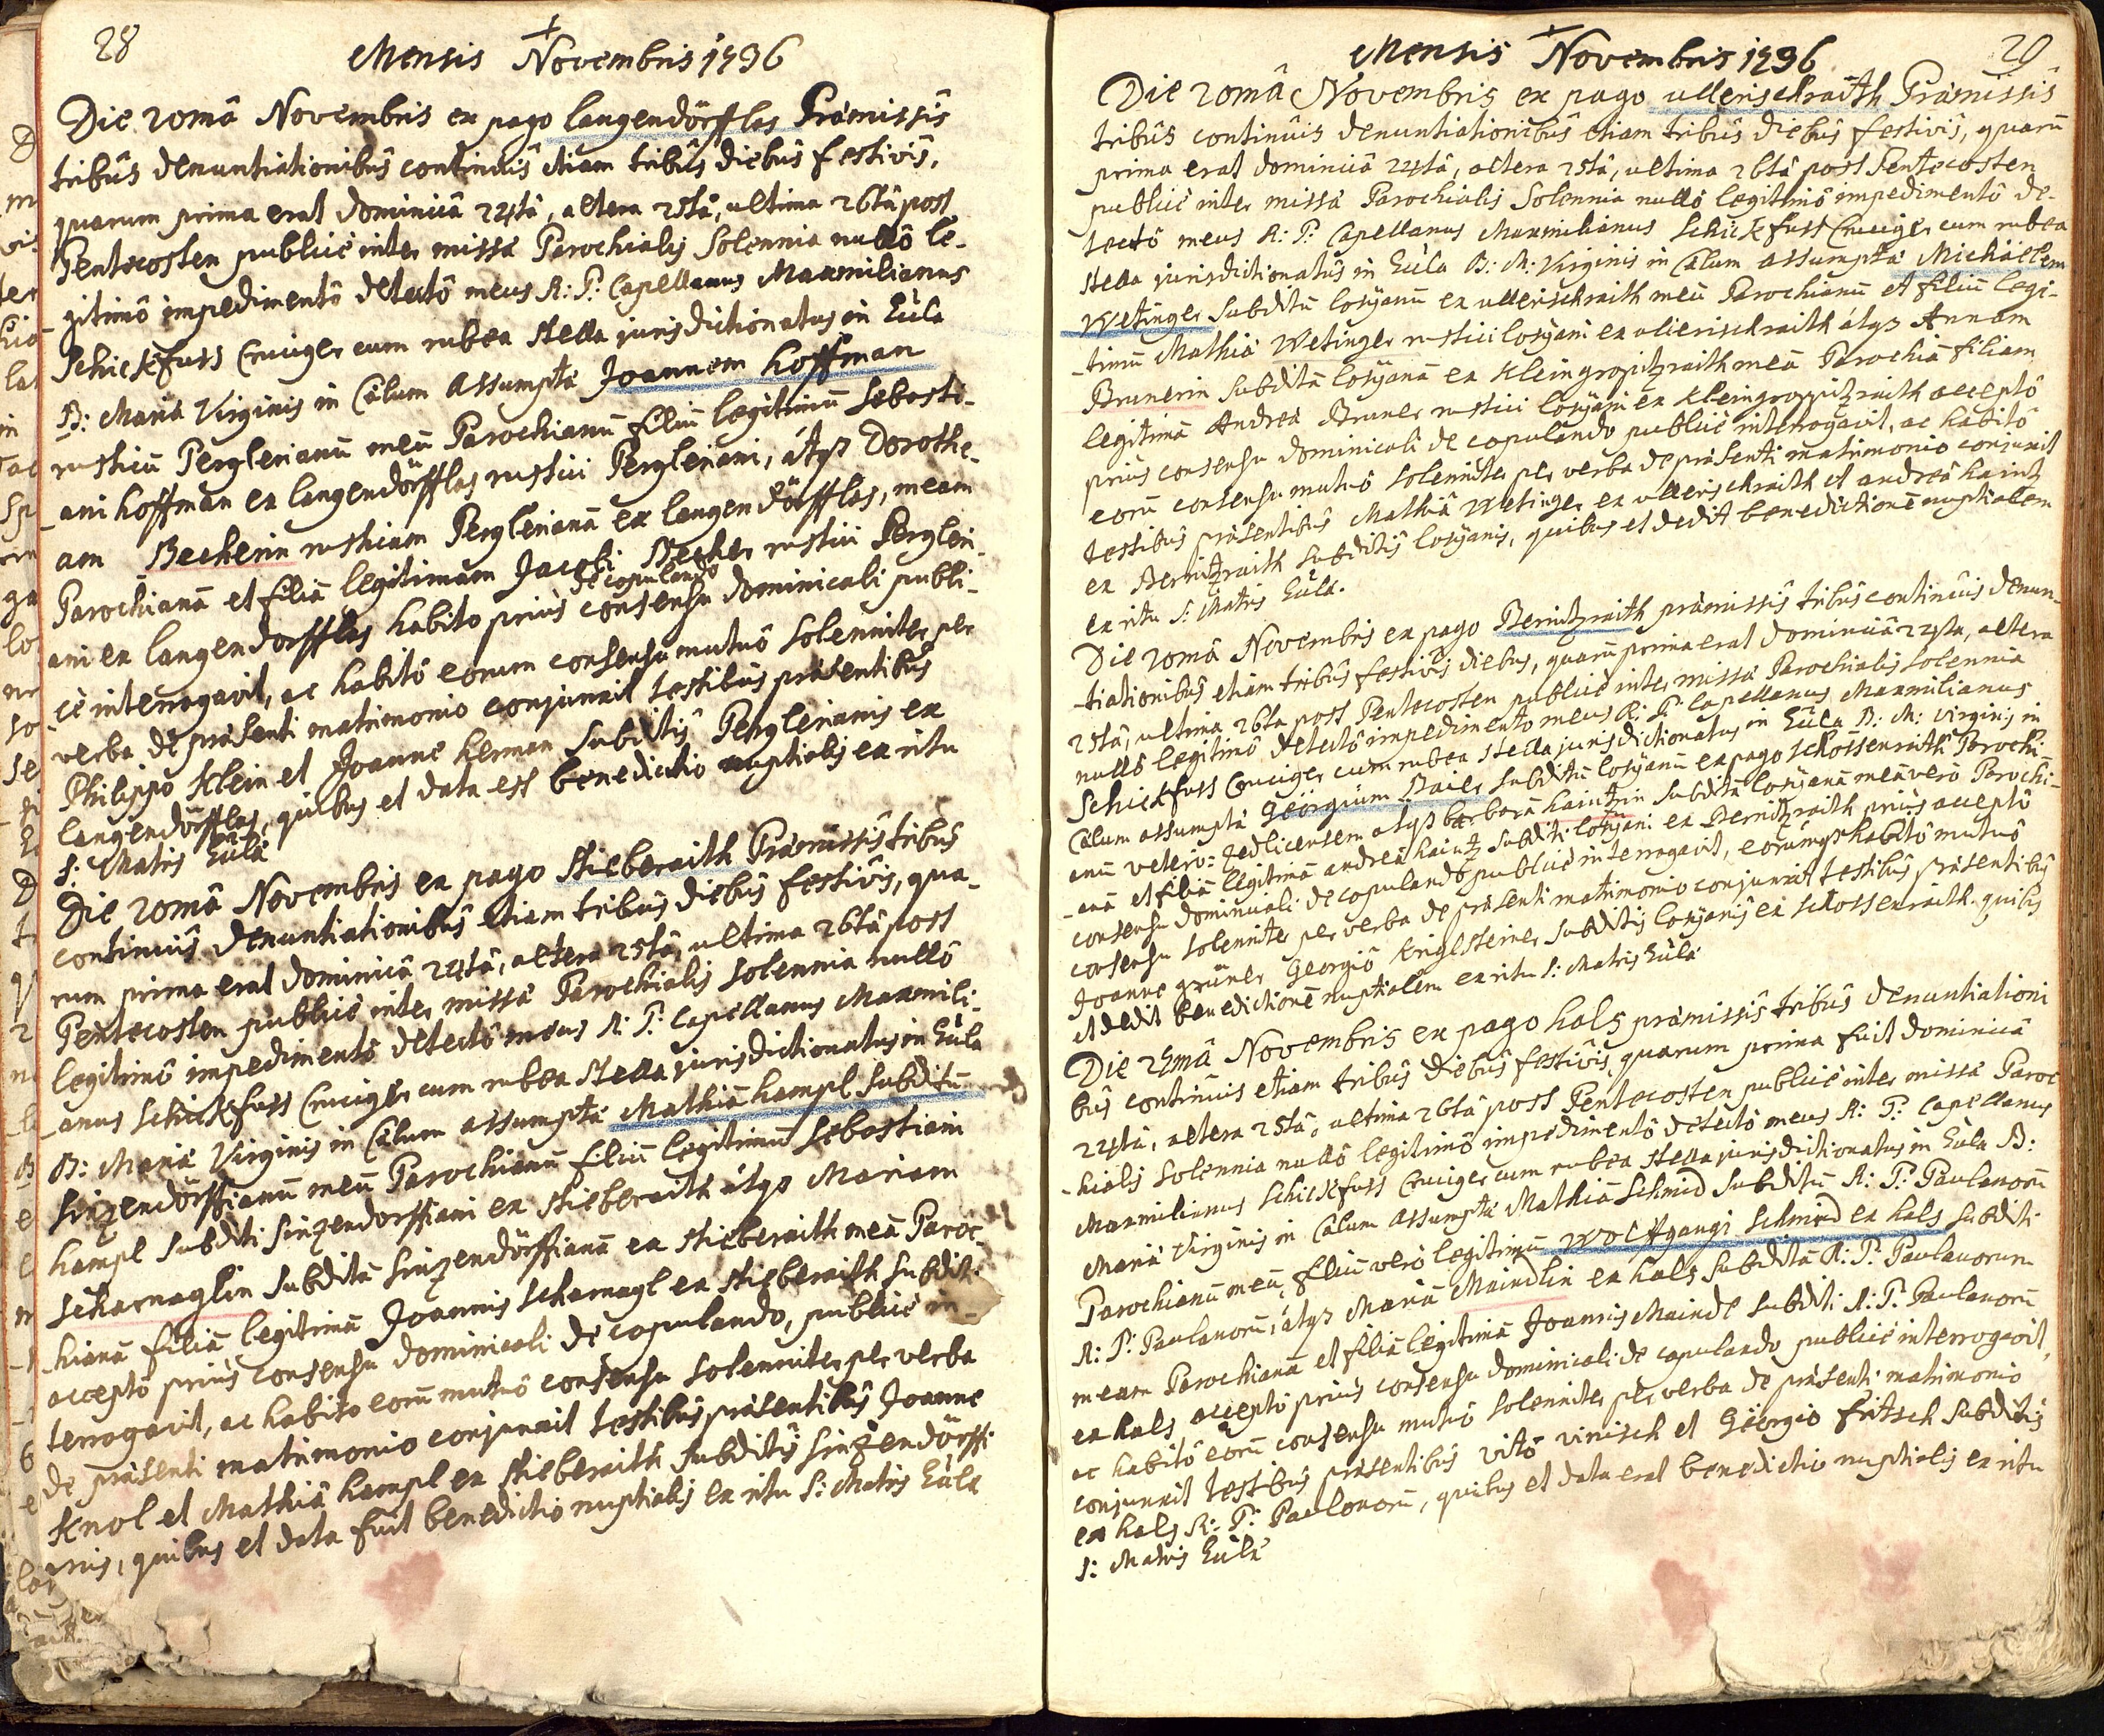 28
Mensis Novembris 1736
Die 20mâ Novembris ex pago langendörfflas Præmissîs
tribûs denuntiationibûs continuîs etiam tribûs diebûs festivîs,
quarum prima erat dominicâ 24tâ, altera 25tâ, ultima 26tâ post
Pentecosten publicè inter missæ Parochialis Solennia nullô le-
gitimô impedimentô detectô meus R: P: Capellanus Maxmilianus
Schickfuss Cruciger cum rubea stella jurisdictionatus in Ecclâ
B: Mariæ Virginis in Cælum Assumptæ Joannem Hoffman
rusticū Perglerianū meū Parochianū filiū legitimū Sebasti-
-ani hoffman ex langendörfflas rustici Pergleriani, átqȝ Dorothe-
am Beckerin rusticam Perglerianā ex langendörfflas, meam
Parochianā et filiā legitimam Jacobi Becker rustici Pergleri-
ani ex langendorfflas habito priùs consensu de copulando dominicali publi-
cè interrogavit, ac habitô eorum consensu mutuô solenniter per
verba de præsenti matrimonio conjunxit testibûs præsentibûs
Philippô Klein et Joanne herman Subditîs Perglerianis ex
langendörfflas, quibus et data est benedictio nuptialis ex ritu
S: Matris Ecclæ
Die 20mâ Novembris ex pago Stieberaith Præmissîs tribûs
continuîs denuntiationibûs etiam tribûs diebûs festivîs, qua-
rum prima erat dominicâ 24tâ, altera 25tâ, ultima 26tâ post
Pentecosten publicè inter missæ Parochialis Solennia nullô
legitimô impedimentô detectô meus R: P: Capellanus Maxmili-
-anus Schickfuss Cruciger cum rubea stella jurisdictionatus in Ecclâ
B: Mariæ Virginis in Cælum assumptæ Mathiā hampl Subditū
Sinzendörffianū meū Parochianū filiū legitimū Sebastiani
hampl Subditi Sinzendorffiani ex Stieberaith átqȝ Mariam
Scharnaglin Subditā Sinzendörffianā ex Stieberaith meā Paroc-
hianā filiā legitimā Joannis Scharnagl ex Stieberaith Subditi
acceptô priùs consensu dominicali de copulando, publicè in-
terrogavit, ac habito eorū mutuô consensu solenniter per verba
de præsenti matrimonio conjunxit testibûs præsentibûs Joanne
Knol et Mathiâ hampl ex Stieberaith Subditîs Sinzendörffi
anis, quibus et data fuit benedictio nuptialis ex ritu S: Matris Ecclæ
29
Mensis Novembris 1736
Die 20mâ Novembris ex pago ullerischraith Præmissîs
tribûs continûis denuntiationibûs etiam tribûs diebûs festivîs, quarū
prima erat dominicâ 24tâ, altera 25tâ, ultima 26tâ post Pentecosten
publicè inter missæ Parochialis Solennia nullô legitimô impedimentô de-
tectô meus R: P: Capellanus Maxmilianus Schickfuss Cruciger cum rubea
stella jurisdictionatûs in Ecclâ B: M: Virginis in Cælum assumptæ Michäelem
Wetinger Subditū losÿanū ex ullerischraith meū Parochianū et filiū legi-
-timū Mathiæ Wetinger rustici losÿani ex ullerischraith átqȝ Annam
Brunerin Subditā losÿanā ex Kleingropitzraith meā Parochiā filiam
legitimā Andreæ Bruner rustici losÿani ex Kleingroppitzraith acceptô
priùs consensu dominicali de copulando publicè interrogavit, ac habitô
eorū consensu mutuô solenniter per verba de præsenti matrimonio conjunxit
testibûs præsentibûs Mathiâ Wetinger ex ullerischraith et andreâ haintz
ex Bernitzraith Subditîs losÿanis, quibus et dedit benedictionē nuptialem
ex ritu S: Matris Ecclæ.
Die 20mâ Novembris ex pago Bernitzraith præmissîs tribûs continuis denun-
-tiationibûs etiam tribûs festivîs diebus, quarū prima erat dominicâ 24ta, altera
25tâ, ultima 26ta post Pentecosten publicè inter missæ Parochialis Solennia
nullô legitimô detectô impedimento meus R: P: Capellanus Maxmilianus
Schickfuss Cruciger cum rubea stella jurisdictionatus in Ecclâ B: M: Virginis in
Cælum assumptæ Geörgium Baier Subditū losÿanū ex pago schossenraith Parochi-
anū veterò-zedlicensem atqȝ barbarā haintzin Subditā losÿanā meā verò Parochi-
-anā et filiā legitimā andreæ haintz Subditi losÿani ex Bernitzraith priùs acceptô
consensu dominicali de copulandô publicè interrogavit, eorumqȝ habitô mutuô
consensu solenniter per verba de præsenti matrimonio conjunxit testibûs præsentibûs
Joanne grüner Georgiô Kriglsteiner Subditîs losÿanîs ex schossenraith quibûs
et dedit benedictionē nuptialem ex ritu S: Matris Ecclæ
Die 27mâ Novembris ex pago hals præmissîs tribûs denuntiationi
bûs continuis etiam tribûs diebûs festivîs, quarum prima fuit dominicâ
24tâ, altera 25tâ, ultima 26tâ post Pentecosten publicè inter missæ Paroc
-hialis Solennia nullô legitimô impedimentô detectô meus R: P: Capellanus
Maxmilianus Schickfuss Cruciger cum rubea stella jurisdictionatus in Ecclâ B:
Mariæ Virginis in Cælum Assumptæ Mathiā Schmid Subditū R: P: Paulanorū
Parochianū meū, filiū verò legitimū Wolffgangi Schmid ex hals Subditi
R: P: Paulanorū, átqȝ Mariā Maindlin ex hals Subditā R: P: Paulanorum
meam Parochianā et filiā legitimā Joannis Maindl Subditi R: P: Paulanorū
ex hals, acceptô priùs consensu dominicali de copulando publicè interrogavit,
ac habitô eorū consensu mutuô solenniter per verba de præsenti matrimonio
conjunxit testibûs præsentibûs vitô vinisch et Geörgio fritsch Subditîs
ex hals R: P: Paulanorū, quibus et data erat benedictio nuptialis ex ritu
S: Matris Ecclæ